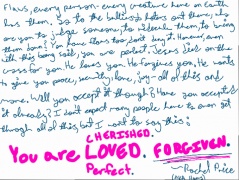 Flaws, every person - every creature here on Earth
has them. So to the bullies & haters out there, who
are you to judge someone, to ridicule them, to bring
them down? You have flaws too, don't deny it. However, even
with this being said, you are perfect. Jesus died on the
cross for you. He loves you. He forgives you. He wants
to give you peace, security, love, joy - all of this and
more. Will you accept it though? Have you accepted
it already? I don't expect many people have to even get
through all of this, but I want to say this:
CHERISHED.
You are LOVED. FORGIVEN.
Perfect.
- Rachel Price